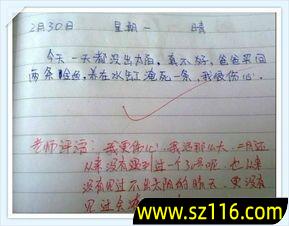 2月30日 星期一 晴
今天一天都没出太阳，真不好，爸爸买回
两条鱼，养在水缸淹死一条，我很伤心。
老师评语：我更伤心，我活那么大，二月还
从来没有碰到过一个30号呢，也从来
没有见过不出太阳的晴天，更没有
见过会
www.sz116.com